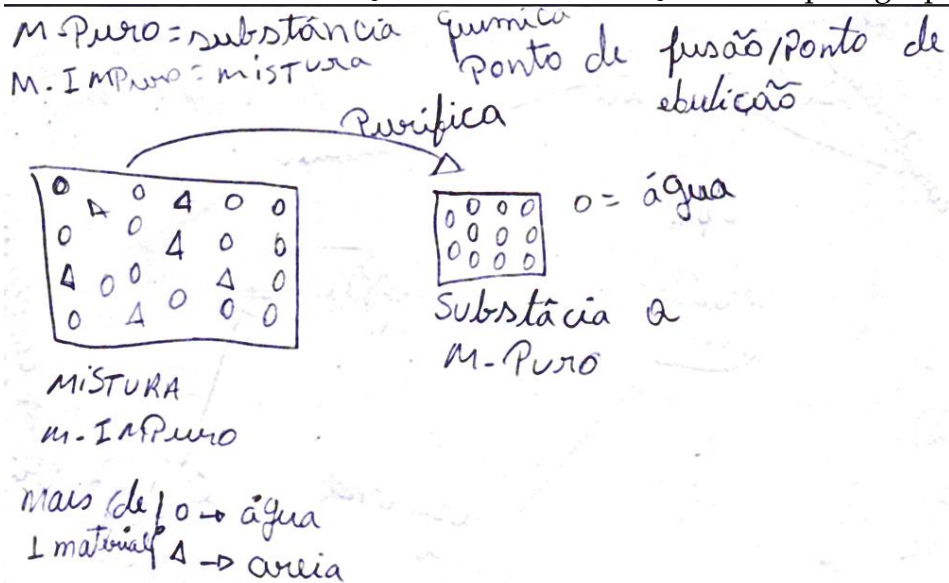 M-Puro = substância química
M. IMPuro = mistura
Ponto de fusão/Ponto de
ebulição
Purifica
o = água
Substâcia a
M-Puro
MISTURA
M-IMPuro
mais de
1 material
o → água
Δ → areia